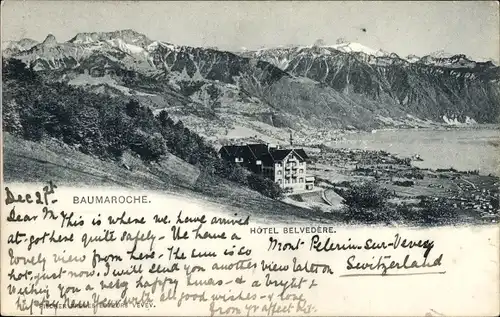 BAUMAROCHE.
HÔTEL BELVEDÈRE.
Dec 21st
Dear Mr This is where we have arrived
at - got here quite safely - We have a
lovely view in every direction. The sun is so
hot, just now. I will send you another view later on
Wishing you a very happy Xmas - & a bright &
happy New Year with all good wishes - & love
from yr affect
Mont Pelerin-Sur-Vevey
Switzerland
VEVEY.